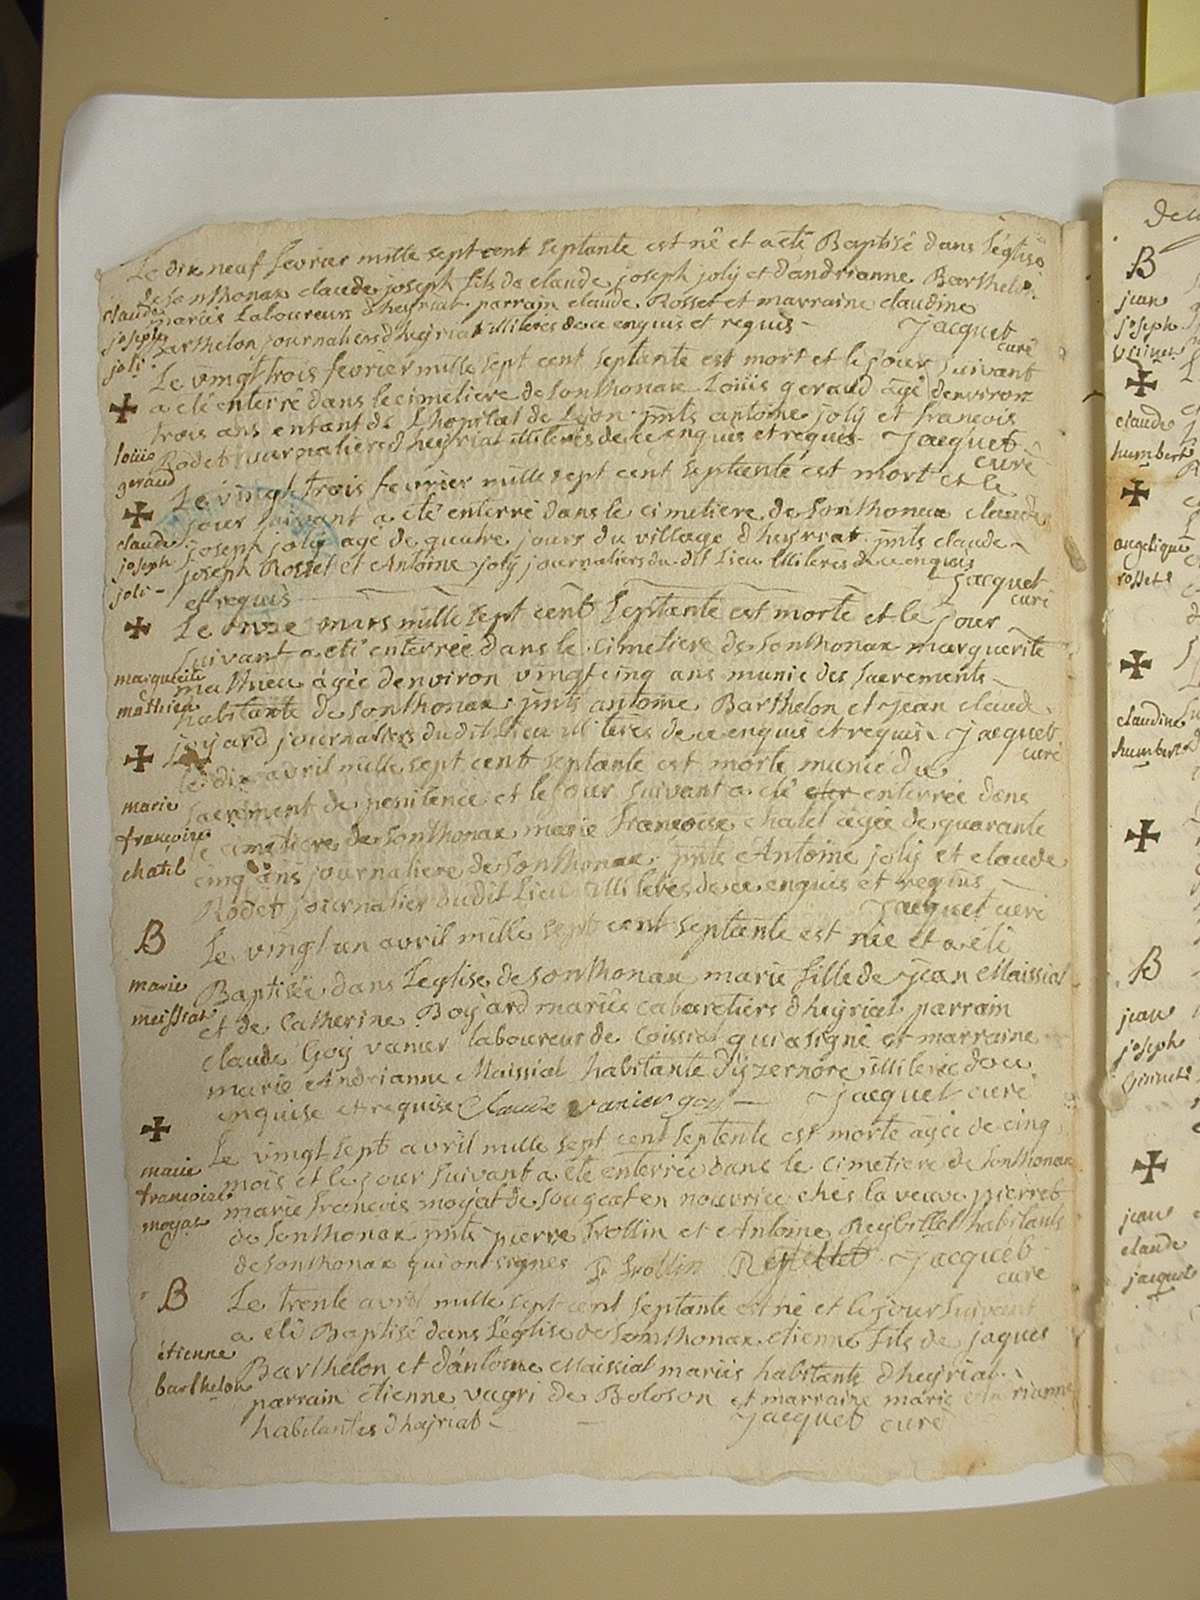 Le dix neuf fevrier mille sept cent septante est né et a été Baptisé dans l'église
de sonthonax claude joseph fils de claude joseph joly et d'andrianne Barthelon
mariés Laboureurs d'heyriat parrain claude Rosset et marraine claudine
Barthelon journaliers d'heyriat illiteres de ce enquis et requis - jacquet
curé
claude
joseph
joli
Le vingt trois fevrier mille sept cent septante est mort et le jour suivant
a eté enterré dans le cimetiere de sonthonax Loüis geraud agé denviron
trois ans enfant de l'hopital de Lyon pnts antoine joly et francois
Rodet journaliers d'heyriat illiteres de ce enquis et requis - jacquet
curé
loüis
geraud
Le vingt trois fevrier mille sept cent septante est mort et le
jour suivant a été enterré dans le cimetiere de sonthonax claude
joseph joly agé de quatre jours du village d'heyriat pnts claude
joseph Rosset et Antoine joly journaliers du dit Lieu illiteres de ce enquis
et requis jacquet
curé
claude
joseph
joli -
Le onze mars mille sept cent septante est morte et le jour
suivant a eté enterrée dans le cimetiere de sonthonax marguerite
mathieu âgée denviron vingt cinq ans munie des sacrements
habitante de sonthonax pnts antoine Barthelon et jean claude
joyard journaliers du dit Lieu illiteres de ce enquis et requis jacquet
curé
marguerite
mathieu
le dix avril mille sept cent septante est morte munie du
sacrement de penitence et le jour suivant a eté eter enterrée dans
le cimetiere de sonthonax marie francoise chatel agée de quarante
cinq ans journaliere de sonthonax pnts Antoine joly et claude
Rodet journalier du dit Lieu illiterés de ce enquis et requis
jacquet curé
marie
francoise
chatel
B
Le vingt un avril mille sept cent septante est née et a été
Baptisée dans Leglise de sonthonax marie fille de jean Maissiat
et de Catherine Boyard mariés cabaretiers d'heyriat parrain
claude Goy vanier laboureur de Coissia qui a signé et marraine
marie Andrianne Maissiat habitante d'yzernore illiterée de ce
enquise et requise Claude vanier goy - jacquet curé
marie
meissiat
Le vingt sept avril mille sept cent septente est morte agée de cinq
mois et le jour suivant a été enterrée dans le cimetiere de sonthonax
marie francois moyat de sougeat en nourrice chés la veuve pierret
de sonthonax pnts pierre trollin et Antoine Reybillet habitants
de sonthonax qui ont signés P trollin Reybillet jacquet
curé
marie
francoise
moyat
B
Le trente avril mille sept cent septante est né et le jour suivant
a eté Baptisé dans L'église de sonthonax etienne fils de jaques
Barthelon et d'antoine Maissiat mariés habitants d'heyriat
parrain etienne vagri de Boloson et marraine marie
habitantes d'heyriat - jacquet curé
étienne
barthelon
B
jean
joseph
claude
humbert
angelique
rosset
claudine
humbert
B
jean
joseph
jean
claude
jacquet